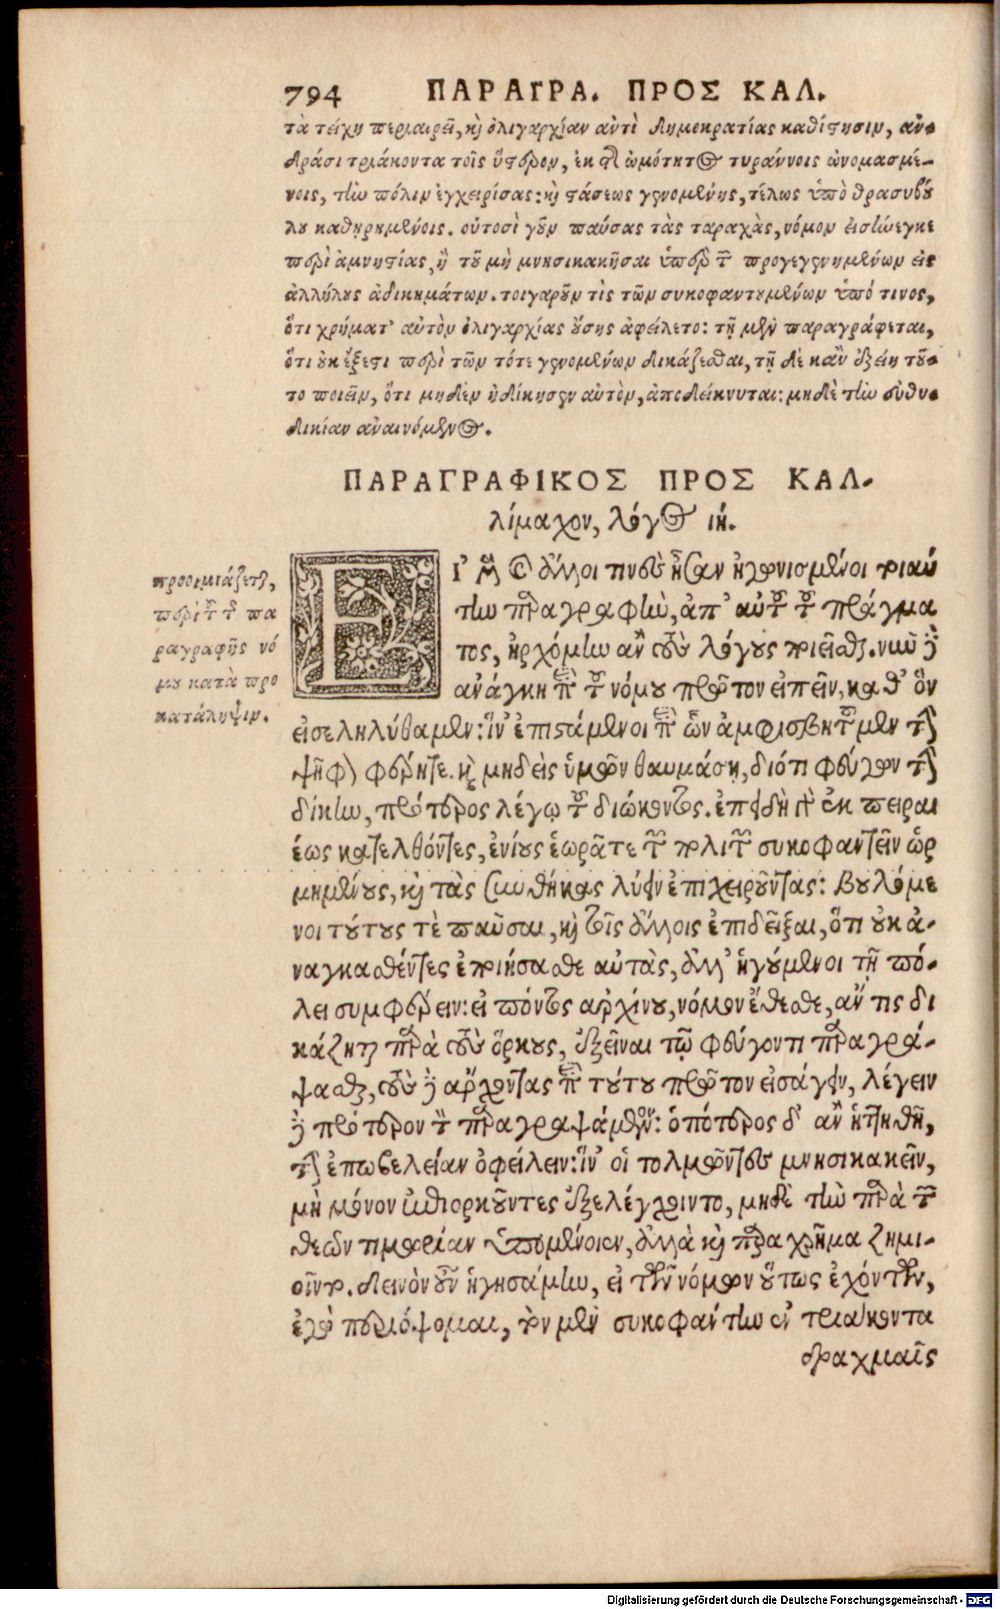 794 ΠΑΡΑΓΡΑ. ΠΡΟΣ ΚΑΛ.
τὰ τείχη περιαιρεῖ, καὶ ὀλιγαρχίαν ἀντὶ δημοκρατίας καθίστησιν, ἀν-
δράσι τριάκοντα τοῖς ὕστερον, ἐκ τῆς ὠμότητος τυράννοις ὠνομασμέ-
νοις, τὴν πόλιν ἐγχειρίσας: καὶ στάσεως γενομένης, τέλως ὑπὸ θρασυβού
λου καθῃρημένοις. οὑτοσὶ γοῦν παύσας τὰς ταραχὰς, νόμον εἰσήνεγκε
περὶ ἀμνηστίας, ἢ τοῦ μὴ μνησικακῆσαι ὑπὲρ τῶν προγεγενημένων εἰς
ἀλλήλους ἀδικημάτων. τοιγαροῦν τὶς τῶν συκοφαντουμένων ὑπό τινος,
ὅτι χρήματ' αὐτὸν ὀλιγαρχίας οὔσης ἀφείλετο: τῇ μὲν παραγράφεται,
ὅτι οὐκ ἔξεστι περὶ τῶν τότε γενομένων δικάζεσθαι, τῇ δὲ κἂν ἐξείη τοῦ-
το ποιεῖν, ὅτι μηδὲν ἠδίκησεν αὐτὸν, ἀποδείκνυται: μηδὲ τὴν εὐθυ-
δικίαν ἀναινόμενος.
ΠΑΡΑΓΡΑΦΙΚΟΣ ΠΡΟΣ ΚΑΛ-
λίμαχον, λόγος ιή.
προοιμιάζεται,
περὶ τοῦ τῆς πα
ραγραφῆς νό
μου κατὰ προ
κατάληψιν.
ΕΙ' μὲν καὶ ἄλλοι τινὲς ἦσαν ἠγωνισμένοι τοιαύ
την παραγραφὴν, ἀπ' αὐτοῦ τοῦ πράγμα
τος, ἠρχόμην ἂν τοὺς λόγους ποιεῖσθαι. νῦν δὲ
ἀνάγκη περὶ τοῦ νόμου πρῶτον εἰπεῖν, καθ' ὃν
εἰσεληλύθαμεν: ἵν' ἐπιστάμενοι περὶ ὧν ἀμφισβητοῦμεν τὴν
ψῆφον φέρητε. καὶ μηδεὶς ὑμῶν θαυμάσῃ, διότι φεύγων τὴν
δίκην, πρότερος λέγω τοῦ διώκοντος. ἐπειδὴ γὰρ ἐκ πειραι
έως κατελθόντες, ἐνίους ἑωρᾶτε τῶν πολιτῶν συκοφαντεῖν ὡρ
μημένους, καὶ τὰς συνθήκας λύειν ἐπιχειροῦντας: βουλόμε
νοι τούτους τὲ παῦσαι, καὶ τοῖς ἄλλοις ἐπιδεῖξαι, ὅτι οὐκ ἀ-
ναγκασθέντες ἐποιήσασθε αὐτὰς, ἀλλ' ἡγούμενοι τῇ πό-
λει συμφέρειν: εἰπόντος ἀρχίνου, νόμον ἔθεσθε, ἄν τις δι
κάζηται παρὰ τοὺς ὅρκους, ἐξεῖναι τῷ φεύγοντι παραγρά-
ψασθαι, τοὺς δὲ ἄρχοντας περὶ τούτου πρῶτον εἰσάγειν, λέγειν
δὲ πρότερον τὸν παραγραψάμενον: ὁπότερος δ' ἂν ἡττηθῇ,
τὴν ἐπωβελείαν ὀφείλειν: ἵν' οἱ τολμῶντες μνησικακεῖν,
μὴ μόνον ἐπιορκοῦντες ἐξελέγχοιντο, μηδὲ τὴν παρὰ τῶν
θεῶν τιμωρίαν ὑπομένοιεν, ἀλλὰ καὶ παραχρῆμα ζημι-
οῖντο. δεινὸν οὖν ἡγησάμην, εἰ τῶν νόμων οὕτως ἐχόντων,
ἐγὼ περιόψομαι, τὸν μὲν συκοφάντην ἐν τριάκοντα
δραχμαῖς
Digitalisierung gefördert durch die Deutsche Forschungsgemeinschaft - DFG